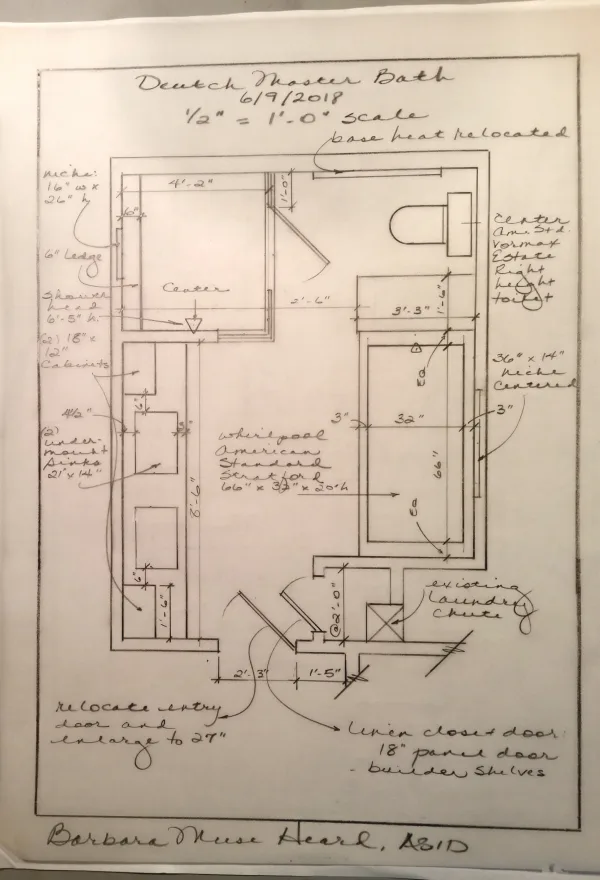 Deutch Master Bath
6/9/2018
1/2" = 1'-0" scale
base heat relocated
niche:
16" w x
26" h
4'-2"
1'-0"
6"
6" Ledge
Shower
head
6'-5" h.
Center
Center
Am. Std.
Vormax
Estate
Right
height
toilet
2'-6"
3'-3"
1'-6"
(2) 18" x
12"
Cabinets
36" x 14"
niche
Centered
EQ
6"
4 1/2"
3"
32"
3"
(2)
under-
mount
sinks
21" x 14"
whirlpool
American
Standard
Stratford
66" x 32" x 20" h
66"
8'-6"
EQ
6"
1'-6"
@2'-0"
existing
Laundry
chute
2'-3"
1'-5"
relocate entry
door and
enlarge to 27"
Linen closet door:
18" panel door
- builder shelves
Barbara Muse Heard, ASID